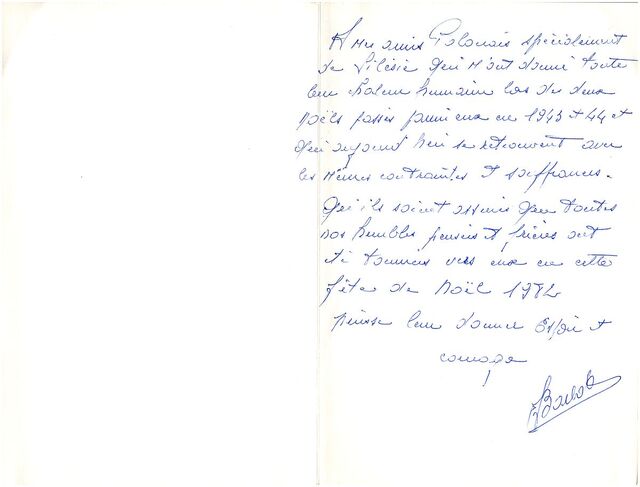 A mes amis Polonais spécialement
de Silésie qui m'ont donné toute
leur chaleur humaine lors des deux
Noëls passés parmi eux en 1943 et 44 et
qui aujourd'hui se retrouvent avec
les mêmes contraintes et souffrances.
Qu'ils soient assurés que toutes
nos humbles pensées et prières ont
été tournées vers eux en cette
fête de Noël 1982
puisse leur donner Espoir et
courage